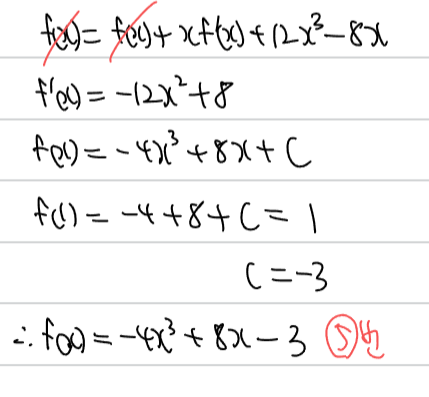 f(x) = f(x) + xf'(x) + 12x³ - 8x
f'(x) = -12x² + 8
f(x) = -4x³ + 8x + C
f(1) = -4 + 8 + C = 1
C = -3
∴ f(x) = -4x³ + 8x - 3 ⑤번